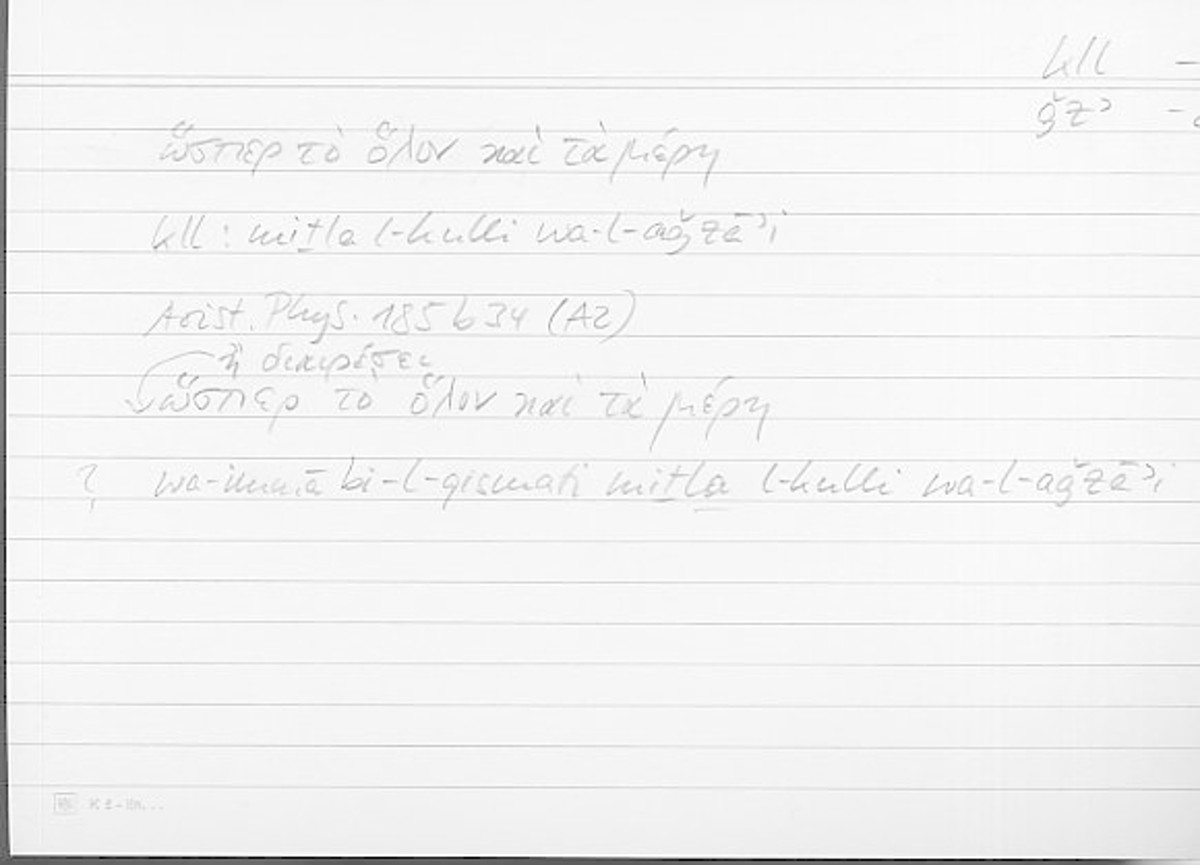 kll —
ǧzʾ -
ὥσπερ τὸ ὅλον καὶ τὰ μέρη
kll : miṯla l-kulli wa-l-aǧzāʾi
Arist. Phys. 185 b 34 (A2)
ἢ διαιρέσει
ὥσπερ τὸ ὅλον καὶ τὰ μέρη
? wa-immā bi-l-qismati miṯla l-kulli wa-l-aǧzāʾi